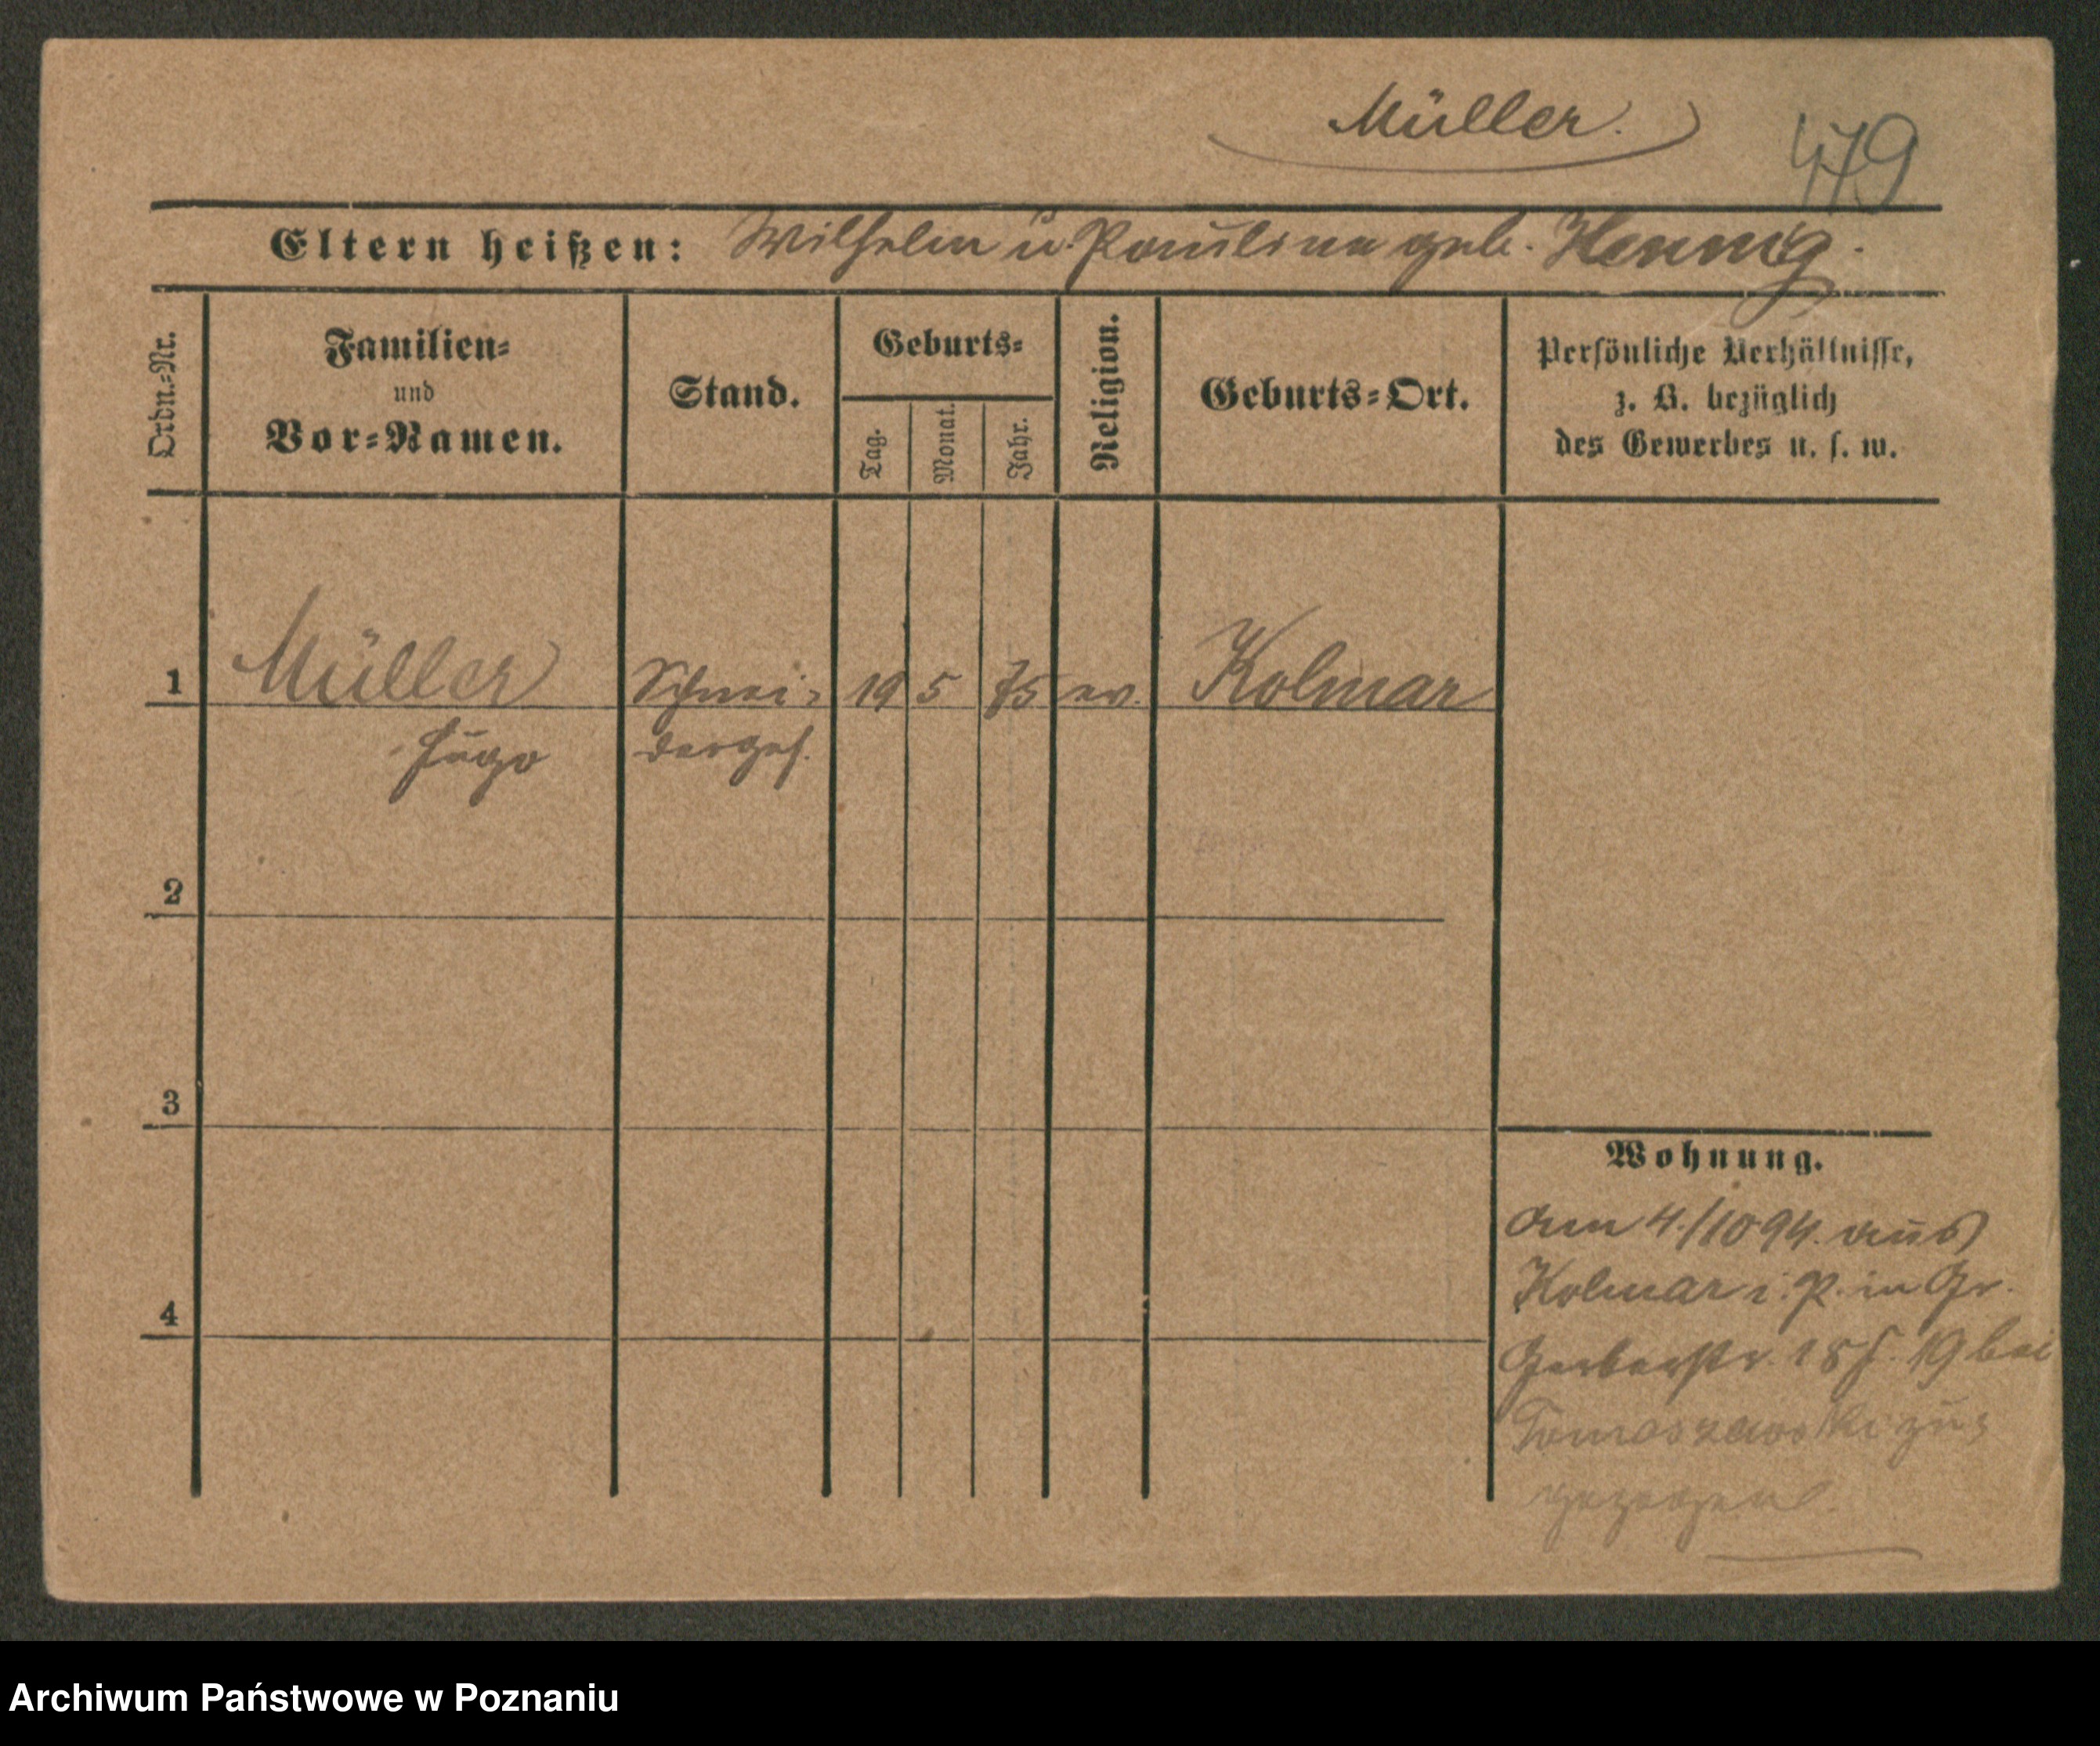 Müller.
479
Eltern heißen: Wilhelm u. Pauline geb. Hennig.
Ordn.-Nr.
Familien-
und
Vor-Namen.
Stand.
Geburts-
Tag.
Monat.
Jahr.
Religion.
Geburts-Ort.
Persönliche Verhältnisse,
z. B. bezüglich
des Gewerbes u. s. w.
1 Müller Schnei- 19 5 75 ev. Kolmar
Hugo derges.
2
3
4
Wohnung.
Am 4./10 94. aus
Kolmar i. P. in Gr.
Gerberstr. 18 19 bei
Tomaszewski zu-
gezogen.
Archiwum Państwowe w Poznaniu